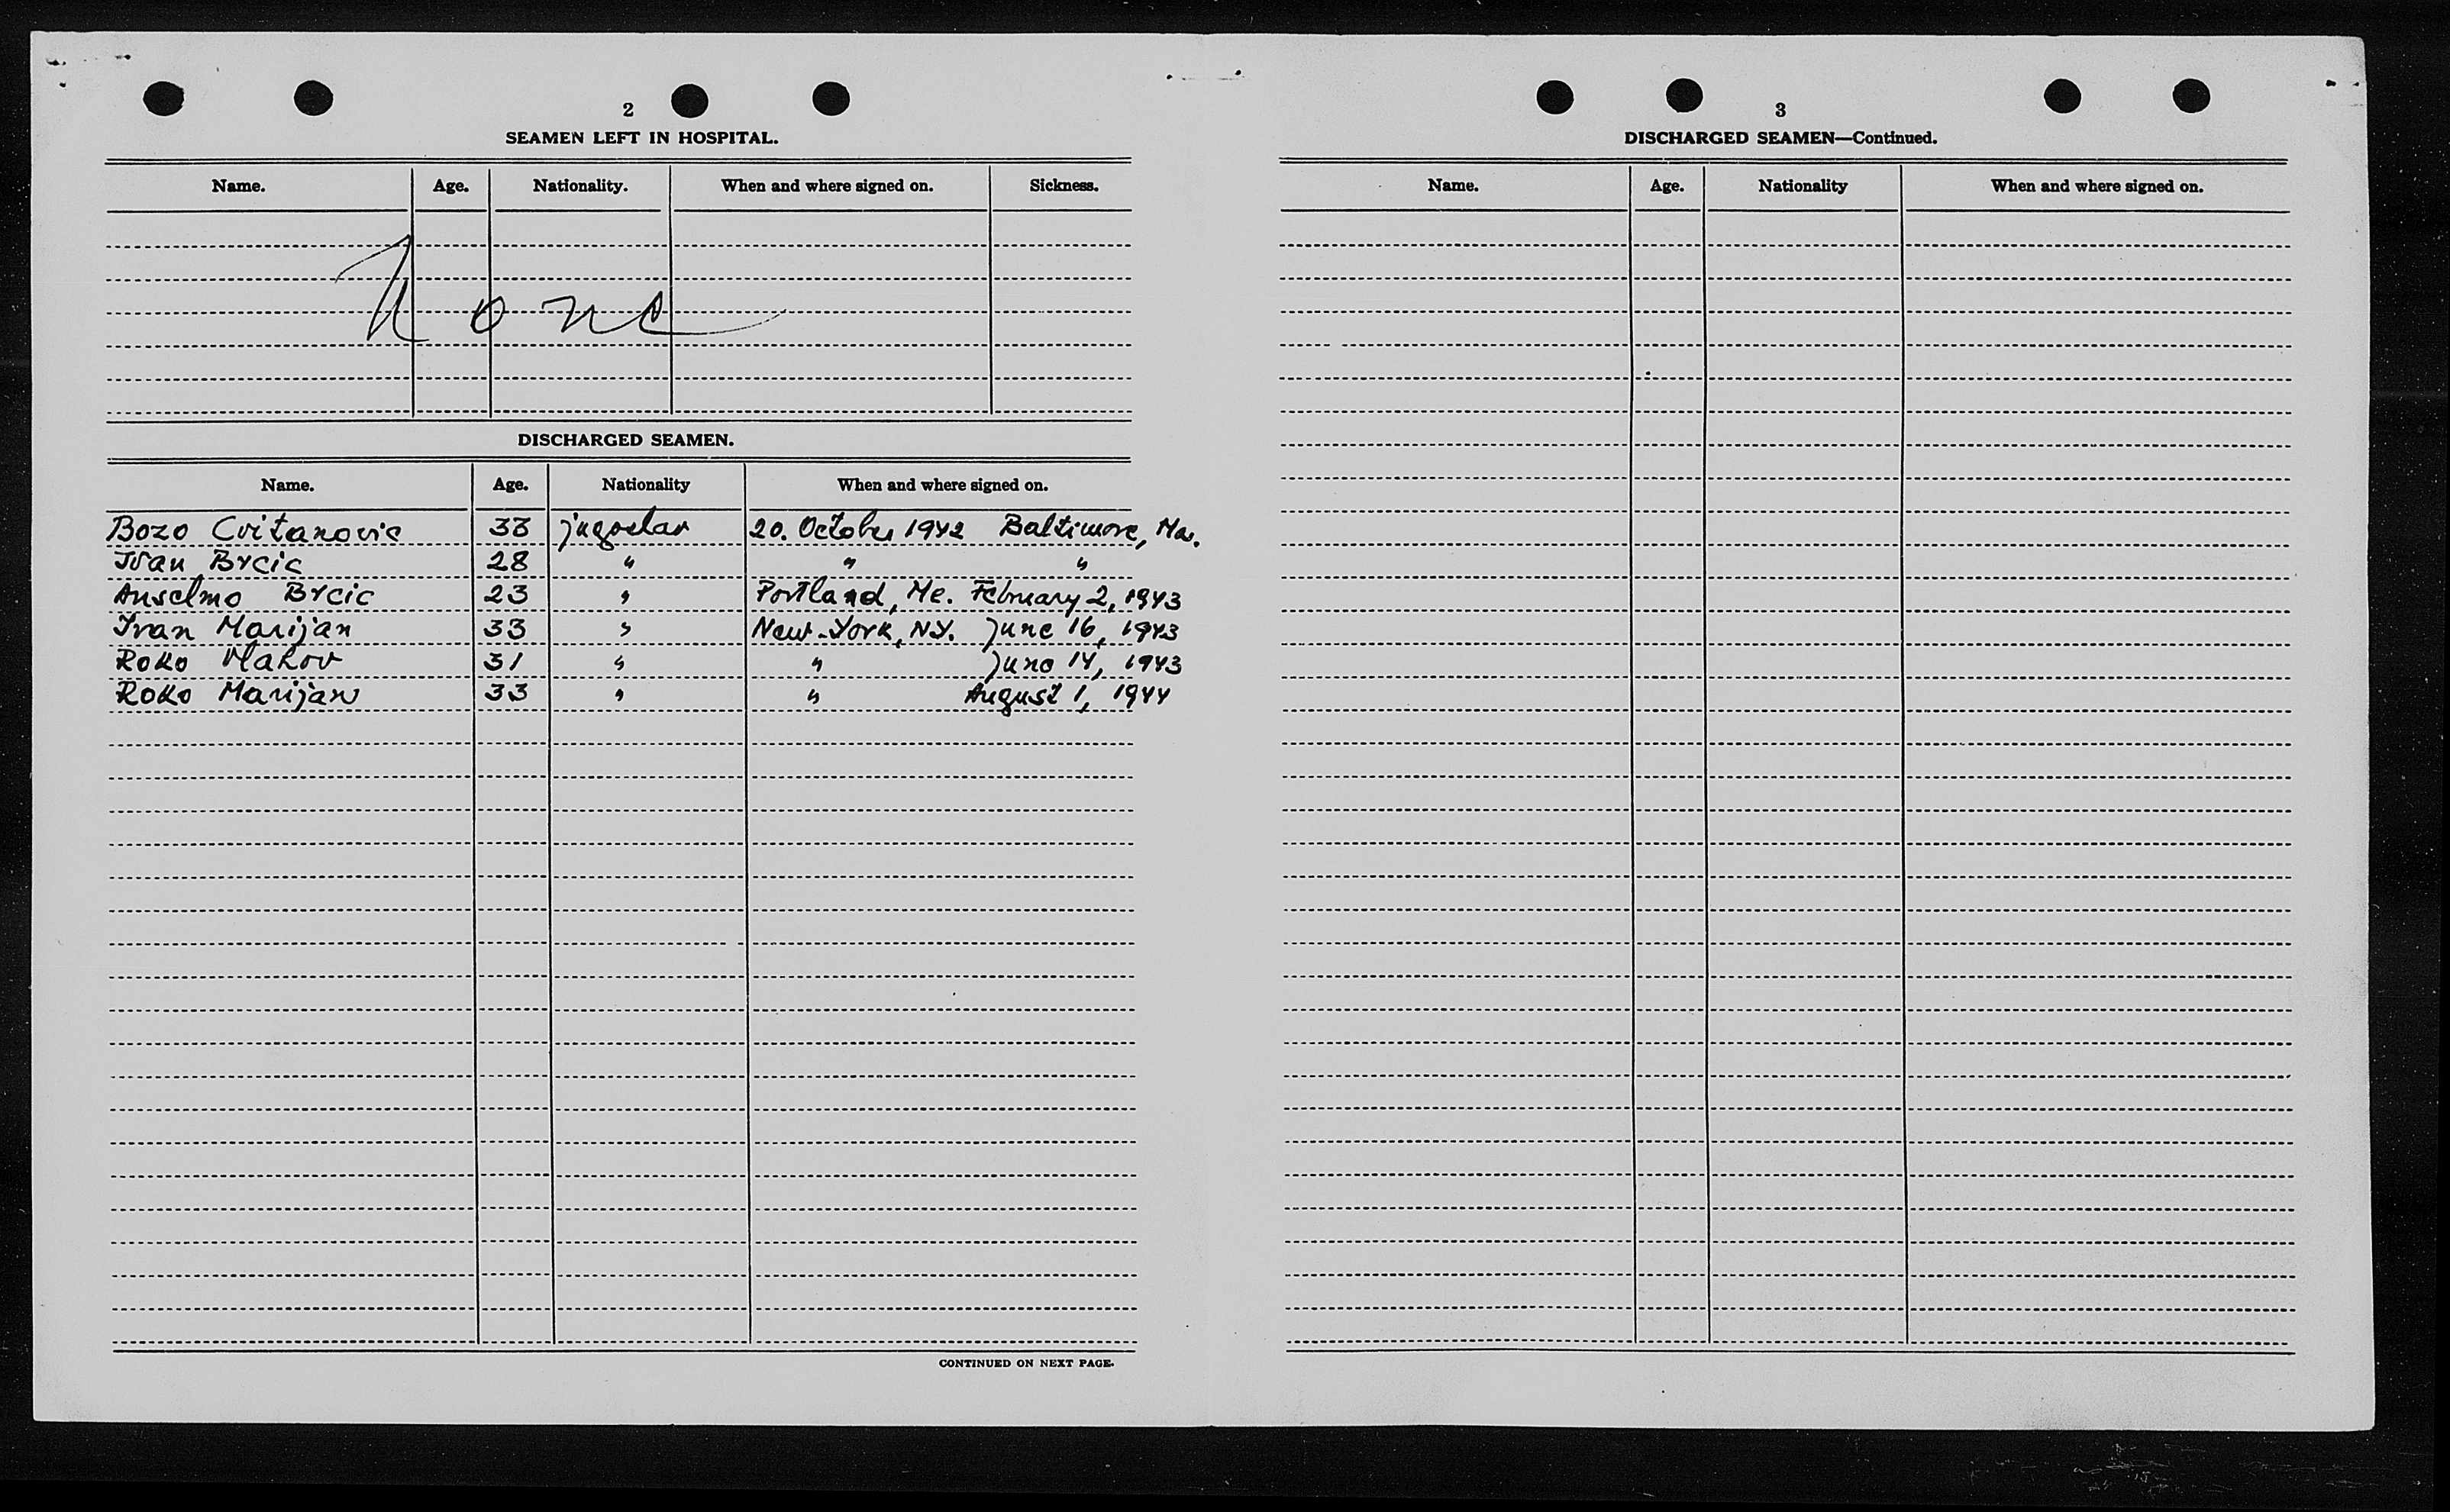 2
SEAMEN LEFT IN HOSPITAL.
Name. Age. Nationality. When and where signed on. Sickness.
None
DISCHARGED SEAMEN.
Name. Age. Nationality When and where signed on.
Bozo Cvitanovic 33 jugoslav 20. October 1942 Baltimore, Ma.
Ivan Brcic 28 " " "
Anselmo Brcic 23 " Portland, Me. February 2, 1943
Ivan Marijan 33 " New-York, N.Y. June 16, 1943
Roko Vlahov 31 " " June 14, 1943
Roko Marijan 33 " " August 1, 1944
CONTINUED ON NEXT PAGE.
3
DISCHARGED SEAMEN—Continued.
Name. Age. Nationality When and where signed on.